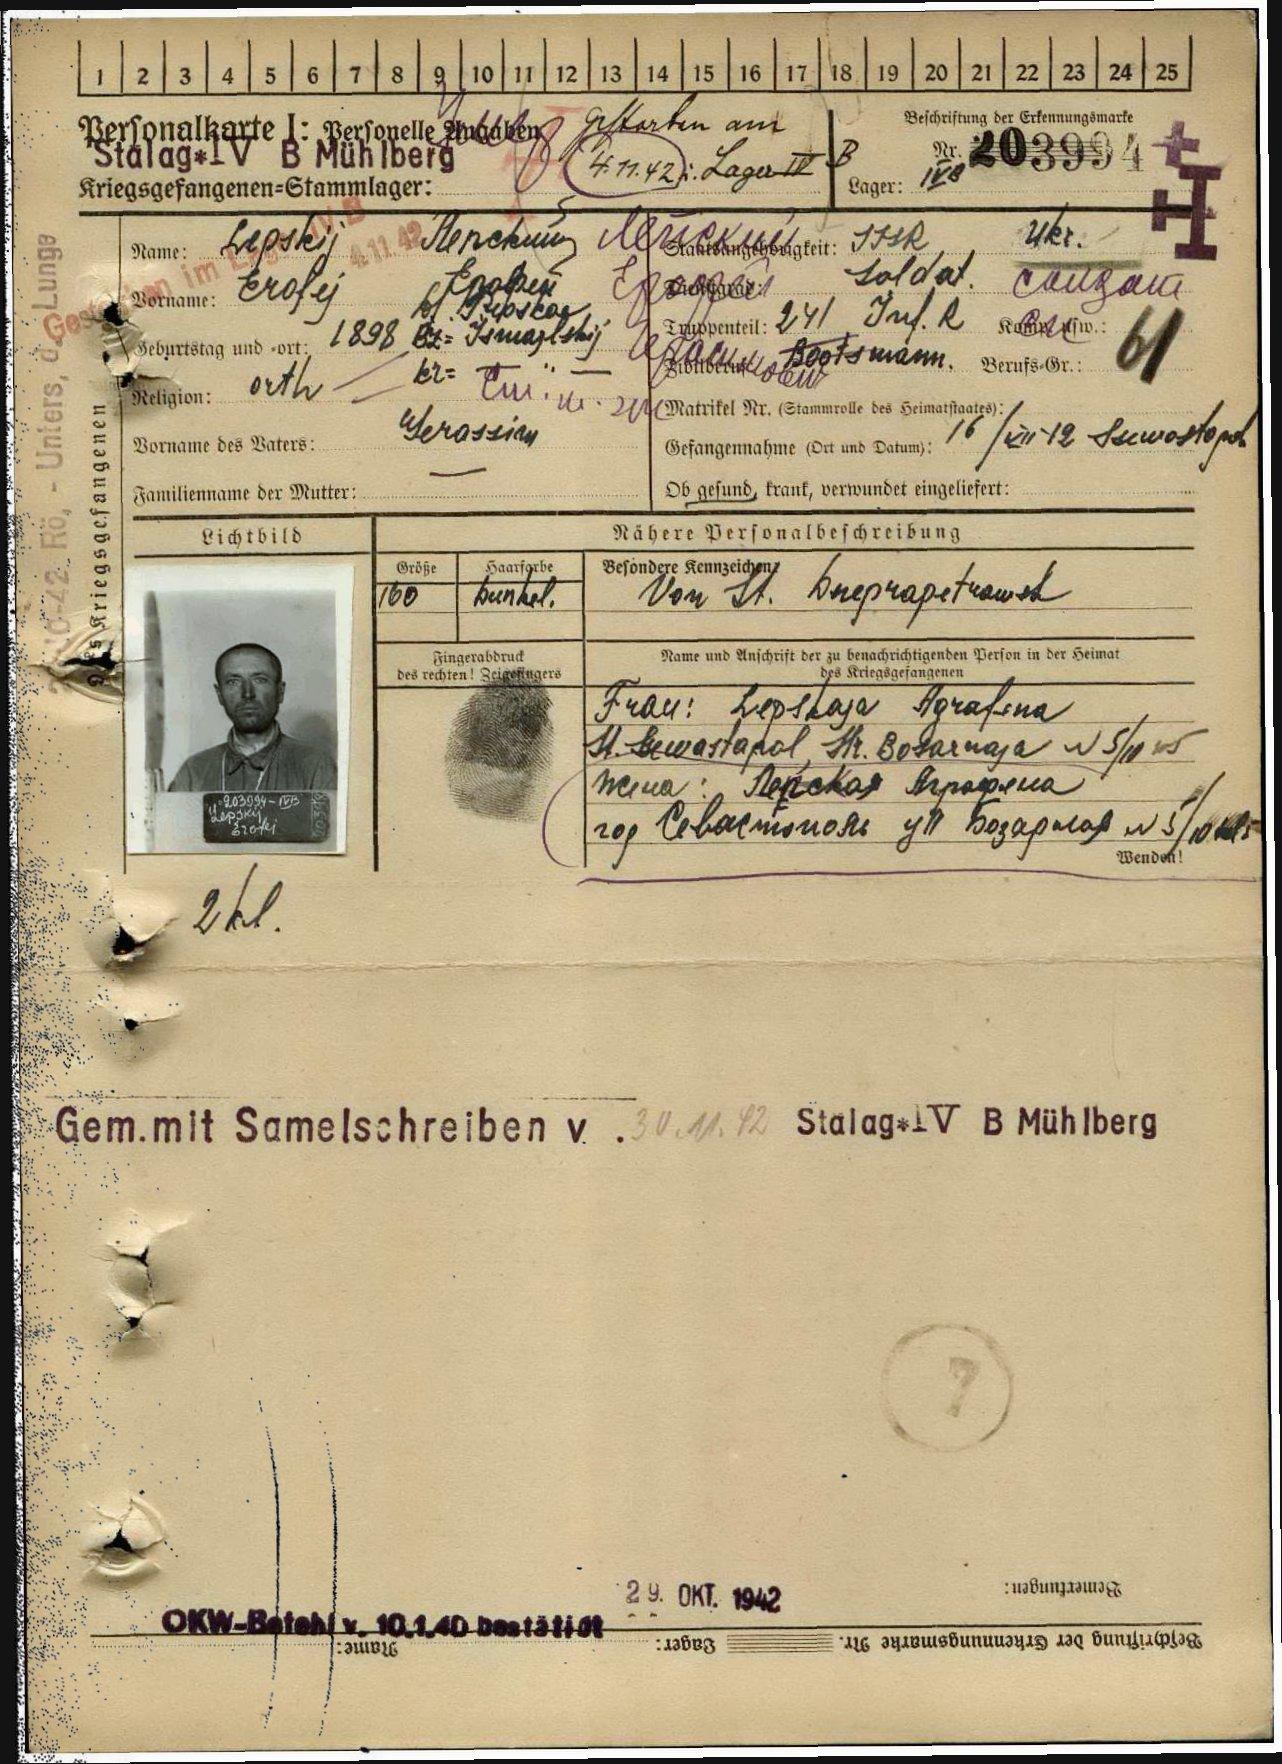 1 2 3 4 5 6 7 8 9 10 11 12 13 14 15 16 17 18 19 20 21 22 23 24 25
Personalkarte I: Personelle Angaben
Stalag*IV B Mühlberg
Kriegsgefangenen-Stammlager:
gestorben am
4.11.42 i. Lager IV B
Beschriftung der Erkennungsmarke
Nr. 203994
Lager: IVB
Gestorben im Lager IV B
4.11.42
Name: Lepskij Лепский
Vorname: Erofej Ерофей
Geburtstag und -ort: 1898
Religion: orth
Vorname des Vaters: Gerassim
Familienname der Mutter: —
Staatsangehörigkeit: SSSR Ukr.
Dienstgrad: Soldat. солдат
Truppenteil: 241 Inf. R Komp. usw.:
Zivilberuf: Bootsmann. Berufs-Gr.: 61
Matrikel Nr. (Stammrolle des Heimatstaates):
Gefangennahme (Ort und Datum): 16/VII-42 Sewastopol
Ob gesund, krank, verwundet eingeliefert:
Des Kriegsgefangenen
Rö, - Unters, d. Lunge
Lichtbild
Nähere Personalbeschreibung
Größe Haarfarbe Besondere Kennzeichen:
160 dunkel. Von St. Dnepropetrowsk
Fingerabdruck
des rechten! Zeigefingers
Name und Anschrift der zu benachrichtigenden Person in der Heimat
des Kriegsgefangenen
Frau: Lepskaja Agrafena
St. Sewastapol, Str. Bosarnaja N 5/10
жена: Лепская Аграфена
гор Севастополь ул Базарная N 5/10
Wenden!
203994-IVB
Lepskij
Erofej
2 kl.
Gem. mit Samelschreiben v . 30.11.42 Stalag*IV B Mühlberg
7
Bemerkungen:
29. OKT. 1942
OKW-Befehl v. 10.1.40 bestätigt
Name: Lager: Beschriftung der Erkennungsmarke Nr.